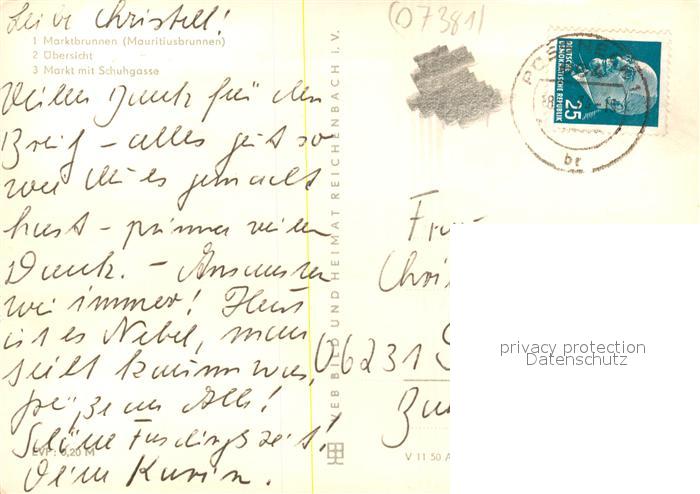 Liebe Christell!
1 Marktbrunnen (Mauritiusbrunnen)
2 Übersicht
3 Markt mit Schuhgasse
Vielen Dank für den
Brief – alles gut so
wie Du es gemacht
hast – prima vielen
Dank. – Ansonsten
wie immer! Heut
ist es Nebel, man
sieht kaum was,
Grüße an Alle!
Schöne Faschingszeit!
Deine Karin.
EVP: 0,20 M
VEB BILD UND HEIMAT REICHENBACH I. V.
V 11 50 A
(07381)
DEUTSCHE
DEMOKRATISCHE REPUBLIK
25
br
Frau
Chri
06231
privacy protection
Datenschutz